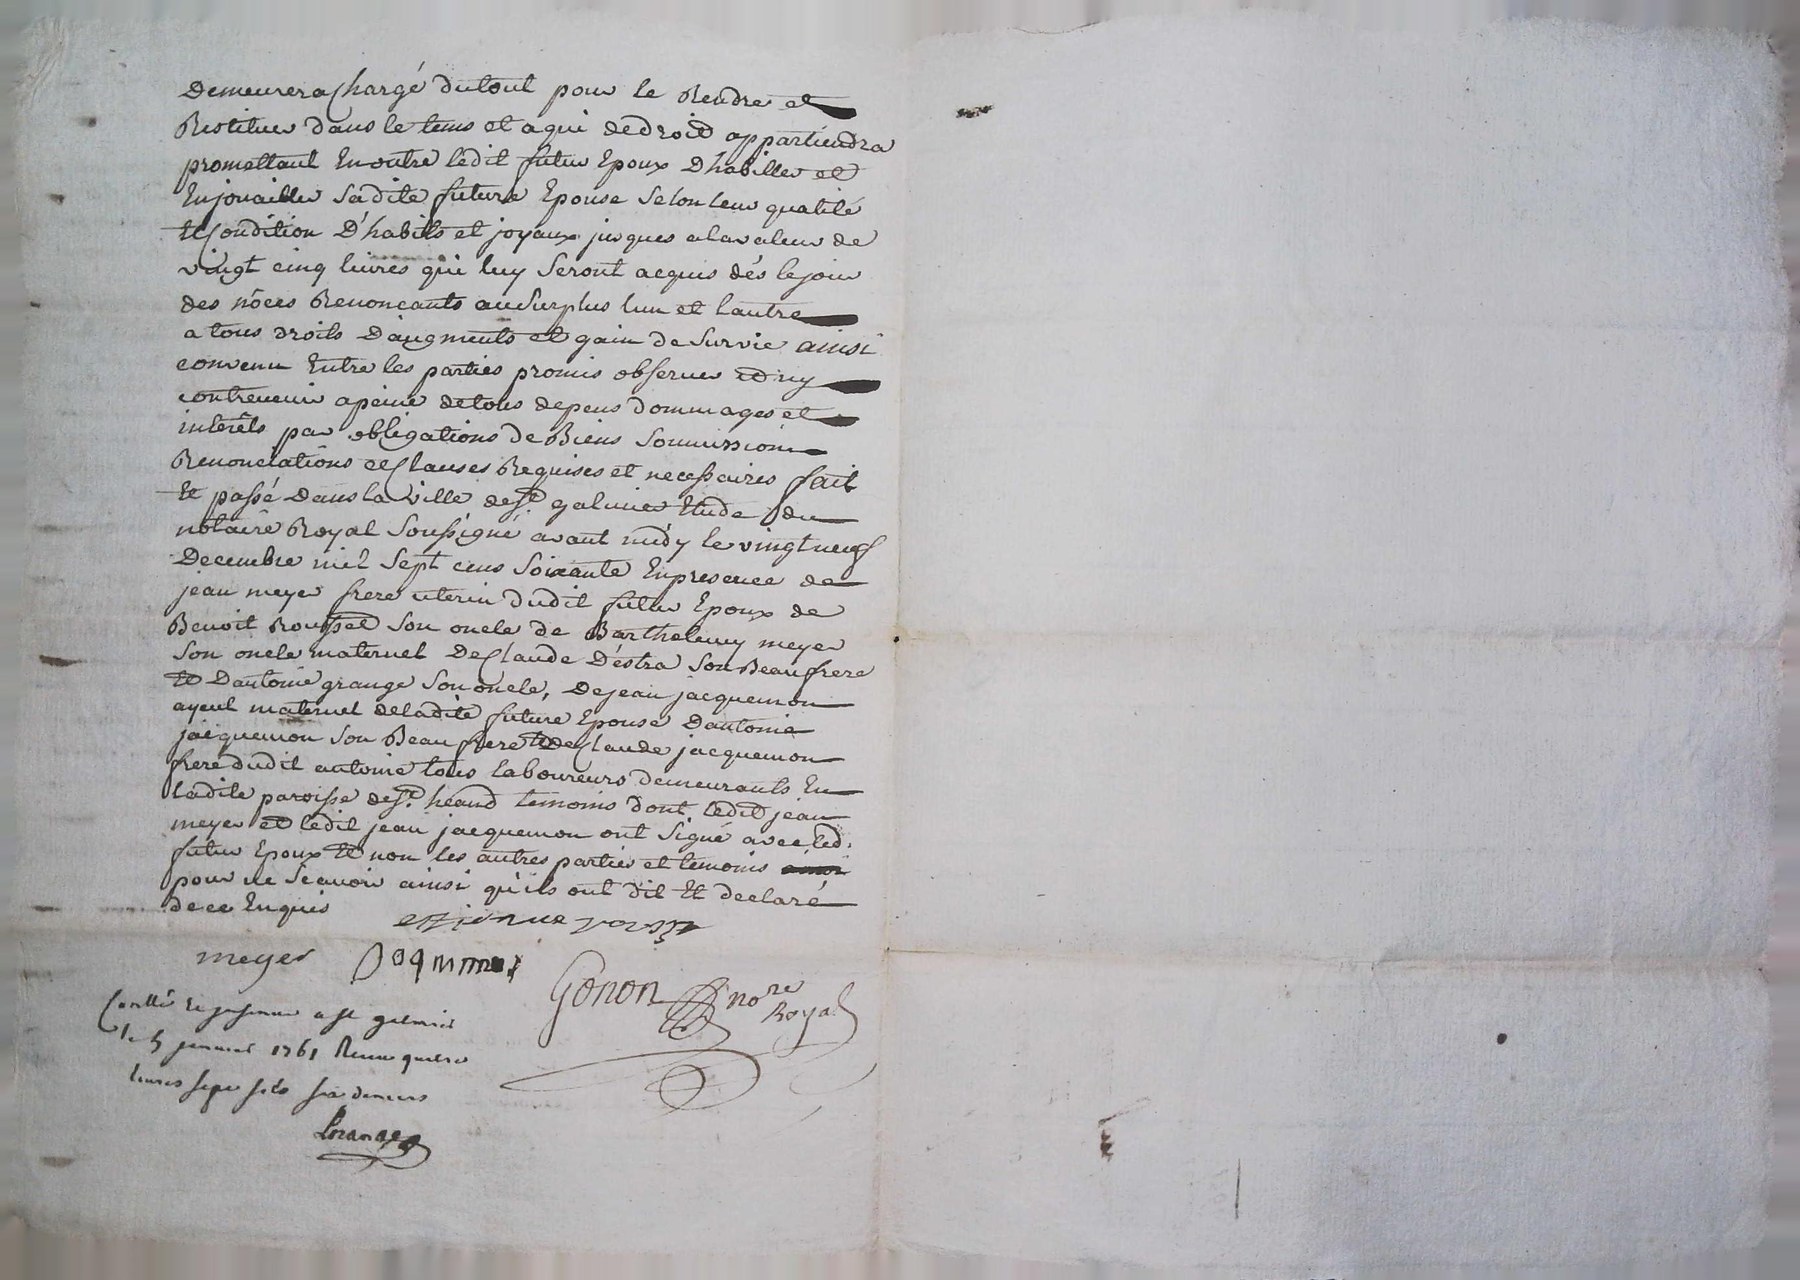 Demeurera Chargé du tout pour le Rendre et
Restituer dans le tems et a qui de droit appartiendra
promettant En outre ledit futur Epoux D'habiller et
Enjouailler Sadite future Epouse Selon leur qualité
Et Condition D'habits et joyaux jusques a la valeur de
vingt cinq livres qui luy Seront acquis dés le jour
des nôces Renonçants au Surplus lun et lautre
a tous droits D'augments et gain de Survie ainsi
convenu Entre les parties promis observer et ny
contrevenir a peine de tous depens dommages et
intérêts par obligations de Biens Soumissions
Renonciations et Clauses Requises et necessaires fait
Et passé Dans la Ville de St. galmier Etude du
notaire Royal Soussigné avant midy le vingt neuf
Decembre mil Sept cens Soixante En presence de
jean meyer frere uterin dudit futur Epoux de
Benoit Rousset Son oncle de Barthelemy meyer
Son oncle maternel De Claude D'éstra Son Beaufrere
Et D'antoine grange Son oncle, De jean jacquemon
ayeul maternel de ladite future Epouse D'antoine
jacquemon Son Beaufrere Et de Claude jacquemon
frere dudit antoine tous Laboureurs demeurants En
ladite paroisse de St. héand temoins dont ledit jean
meyer et ledit jean jacquemon ont Signé avec led.
futur Epoux Et non les autres parties et temoins
pour ne Sçavoir ainsi qu'ils ont dit Et declaré
de ce Enquis
meyer
Gonon nore
Royal
Conllé a St galmier
le 5 janvier 1761 Reçu quatre
livres sept sols six deniers